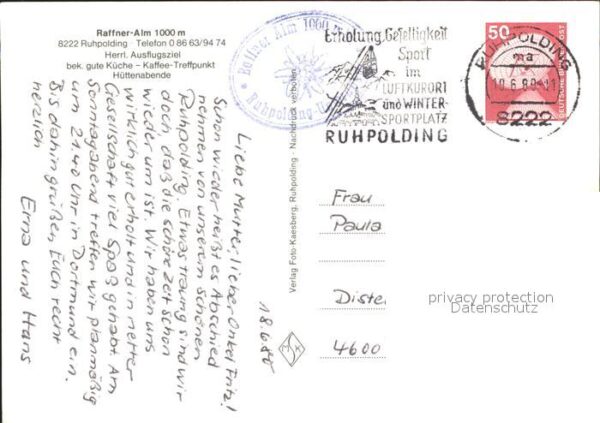 Raffner-Alm 1000 m
8222 Ruhpolding · Telefon 0 86 63/94 74
Herrl. Ausflugsziel
bek. gute Küche – Kaffee-Treffpunkt
Hüttenabende
Raffner Alm 1000
Ruhpolding
Erholung, Geselligkeit
Sport
im
LUFTKURORT
und WINTER-
SPORTPLATZ
RUHPOLDING
RUHPOLDING
ma
8222
50
DEUTSCHE BUNDESPOST
18.6.80
Liebe Mutter, lieber Onkel Fritz!
Schon wieder heißt es Abschied
nehmen von unserem schönen
Ruhpolding. Etwas traurig sind wir
doch, daß die schöne Zeit schon
wieder um ist. Wir haben uns
wirklich gut erholt und in netter
Gesellschaft viel Spaß gehabt. Am
Sonnagabend treffen wir planmäßig
um 21.40 Uhr in Dortmund ein.
Bis dahin grüßen Euch recht
herzlich
Erna und Hans
Verlag Foto-Kaesberg, Ruhpolding · Nachdruck verboten
MSK
Frau
Paula
Distel
4600
privacy protection
Datenschutz